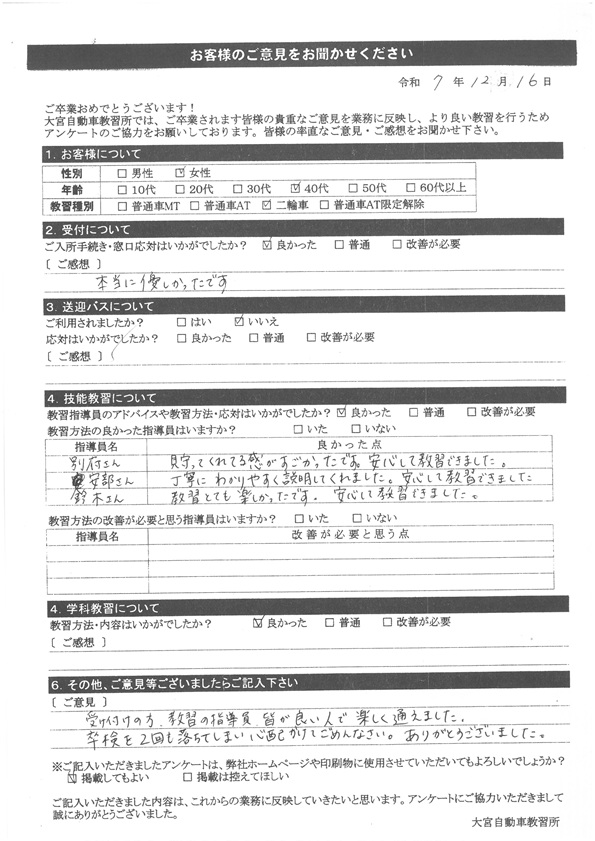 お客様のご意見をお聞かせください
令和 7 年 12 月 16 日
ご卒業おめでとうございます！
大宮自動車教習所では、ご卒業されます皆様の貴重なご意見を業務に反映し、より良い教習を行うため
アンケートのご協力をお願いしております。皆様の率直なご意見・ご感想をお聞かせ下さい。
1. お客様について
性別 □ 男性 ☑ 女性
年齢 □ 10代 □ 20代 □ 30代 ☑ 40代 □ 50代 □ 60代以上
教習種別 □ 普通車MT □ 普通車AT ☑ 二輪車 □ 普通車AT限定解除
2. 受付について
ご入所手続き・窓口応対はいかがでしたか？ ☑ 良かった □ 普通 □ 改善が必要
〔 ご感想 〕
本当に優しかったです
3. 送迎バスについて
ご利用されましたか？ □ はい ☑ いいえ
応対はいかがでしたか？ □ 良かった □ 普通 □ 改善が必要
〔 ご感想 〕
4. 技能教習について
教習指導員のアドバイスや教習方法・応対はいかがでしたか？ ☑ 良かった □ 普通 □ 改善が必要
教習方法の良かった指導員はいますか？ □ いた □ いない
指導員名 良かった点
別府さん 見守ってくれてる感がすごかったです。安心して教習できました。
安部さん 丁寧にわかりやすく説明してくれました。安心して教習できました
鈴木さん 教習とても楽しかったです。安心して教習できました。
教習方法の改善が必要と思う指導員はいますか？ □ いた □ いない
指導員名 改善が必要と思う点
4. 学科教習について
教習方法・内容はいかがでしたか？ ☑ 良かった □ 普通 □ 改善が必要
〔 ご感想 〕
6. その他、ご意見等ございましたらご記入下さい
〔 ご意見 〕
受け付けの方、教習の指導員、皆が良い人で楽しく通えました。
卒検を2回も落ちてしまい心配かけてごめんなさい。ありがとうございました。
※ご記入いただきましたアンケートは、弊社ホームページや印刷物に使用させていただいてもよろしいでしょうか？
☑ 掲載してもよい □ 掲載は控えてほしい
ご記入いただきました内容は、これからの業務に反映していきたいと思います。アンケートにご協力いただきまして
誠にありがとうございました。
大宮自動車教習所